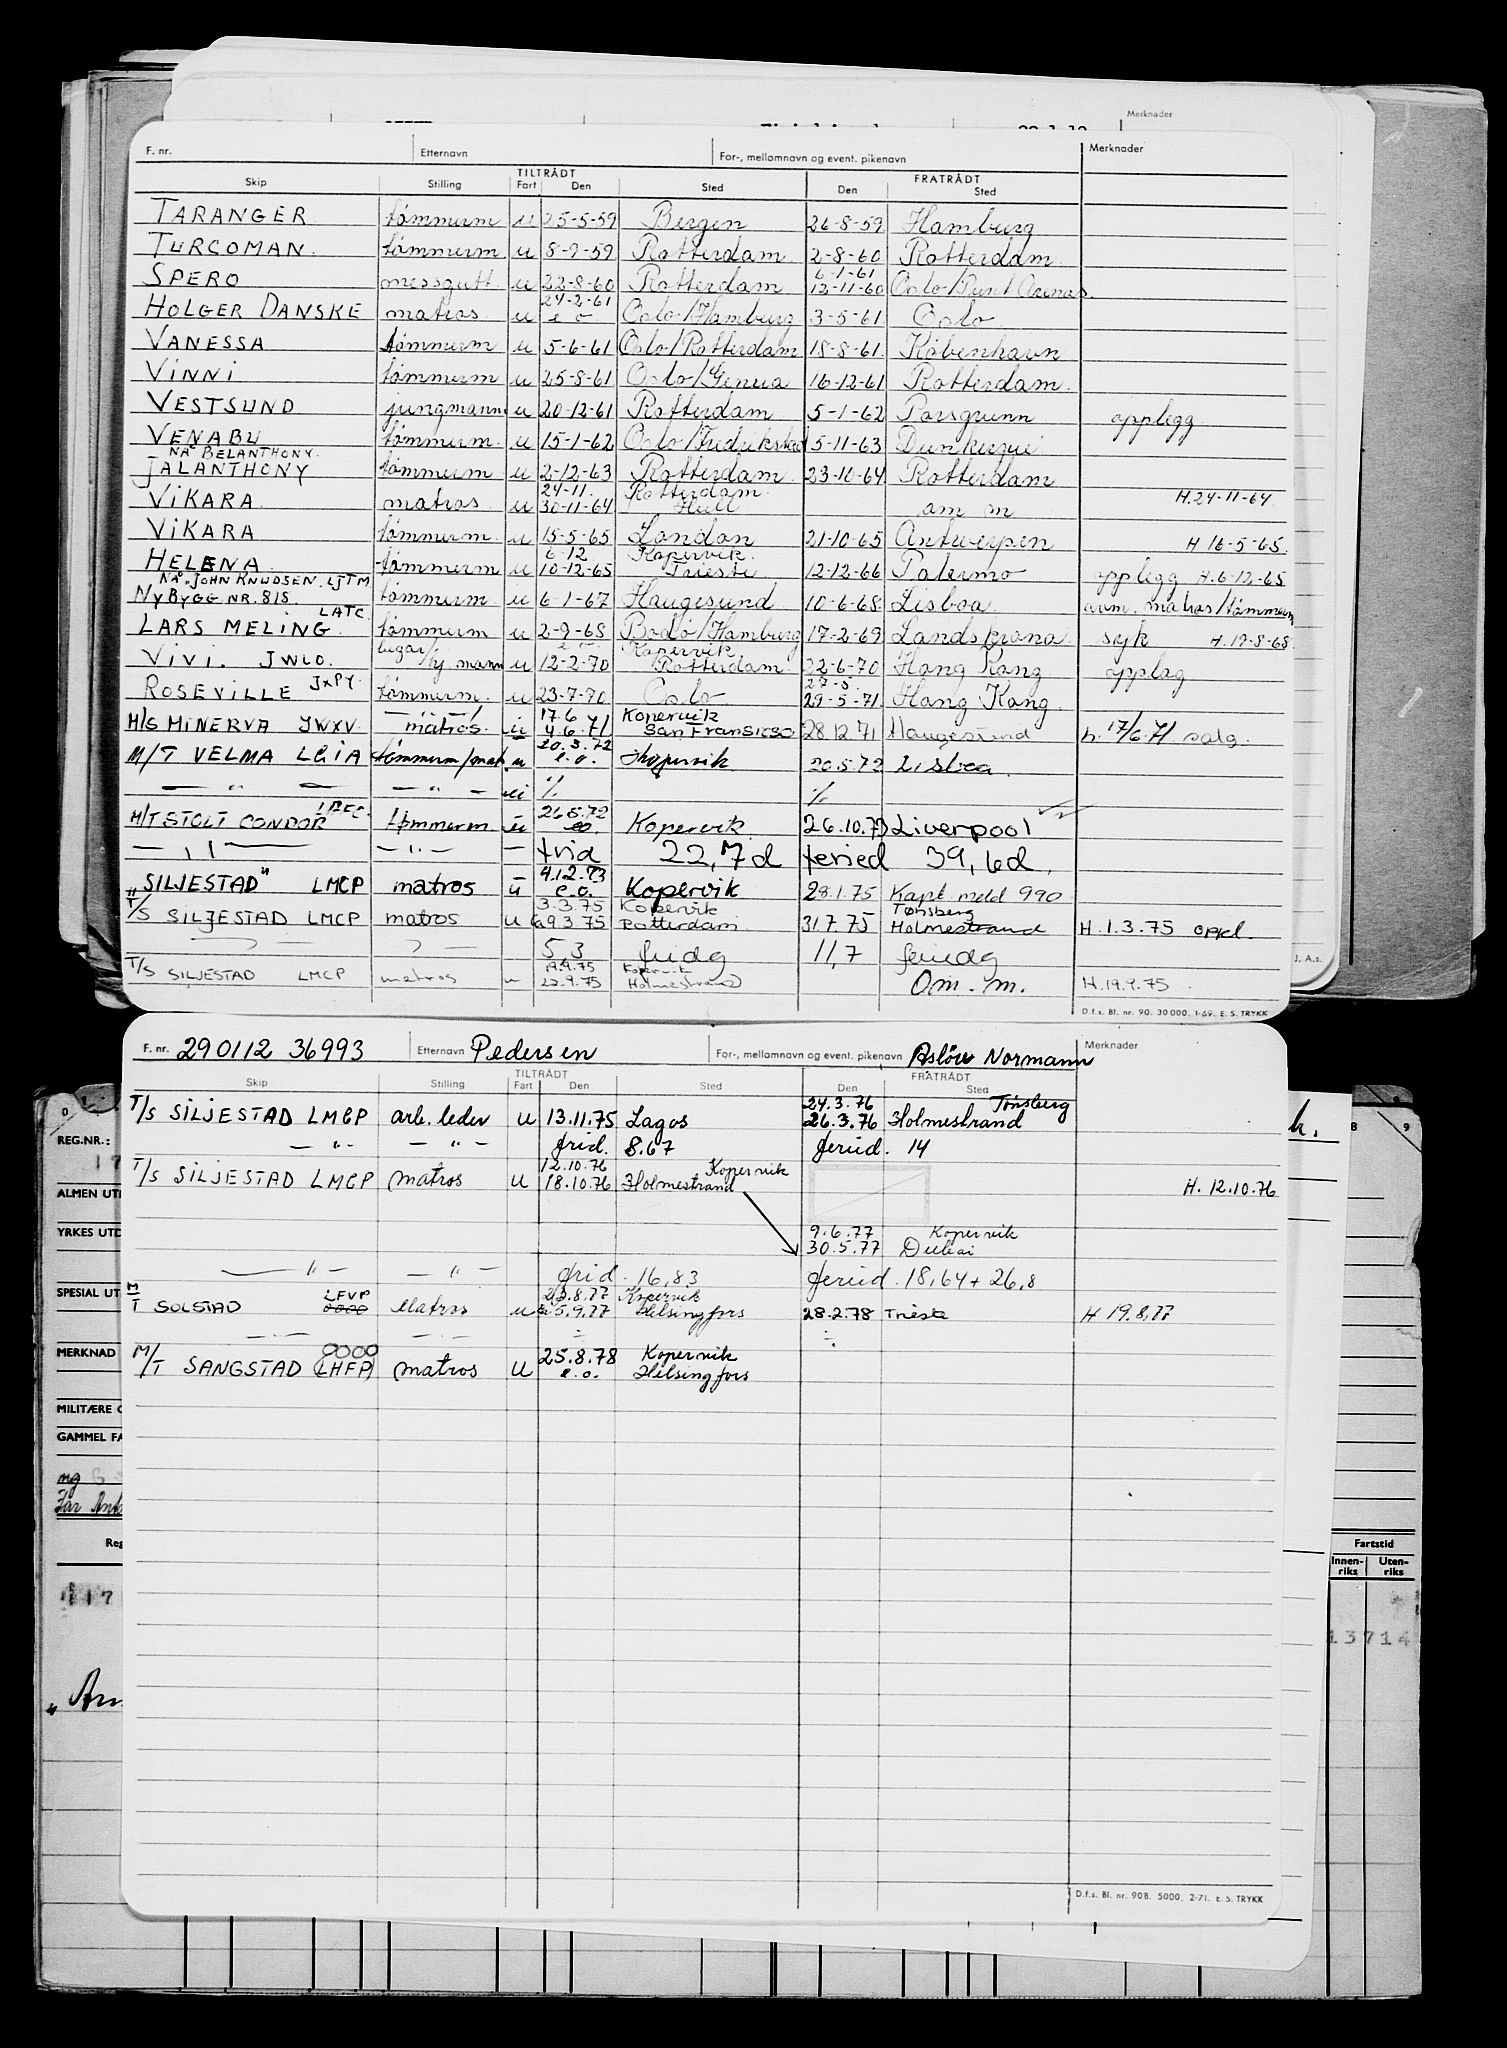 Merknader
F. nr. Etternavn For-, mellomnavn og event. pikenavn Merknader
TILTRÅDT FRATRÅDT
Skip Stilling Fart Den Sted Den Sted
TARANGER tömmerm u 25-5-59 Bergen 26-8-59 Hamburg
TURCOMAN tömmerm u 8-9-59 Rotterdam 2-8-60 Rotterdam
6-1-61
SPERO messgutt u 22-8-60 Rotterdam 12-11-60 Oslo/Punt Arinas
24-2-61
HOLGER DANSKE matros u e o Oslo/Hamburg 3-5-61 Oslo
VANESSA tömmerm u 5-6-61 Oslo/Rotterdam 18-8-61 Köbenhavn
VINNI tömmerm u 25-8-61 Oslo/Genua 16-12-61 Rotterdam
VESTSUND jungmann u 20-12-61 Rotterdam 5-1-62 Porsgrunn opplegg
VENABU tömmerm. u 15-1-62 Oslo/Fredrikstad 5-11-63 Dunkerque
NÅ BELANTHONY.
JALANTHONY tömmerm u 2-12-63 Rotterdam 23-10-64 Rotterdam
24-11. Rotterdam
VIKARA matros u 30-11-64 Hull am m H.24-11-64
VIKARA tömmerm. u 15-5-65 London 21-10-65 Antwerpen H 16-5-65.
6-12 Kopervik.
HELENA tömmerm u 10-12-65 Trieste 12-12-66 Palermo opplegg H.6-12-65
NÅ. JOHN KNUDSEN. LJTM
NYBYGG NR. 818. tömmerm u 6-1-67 Haugesund 10-6-68 Lisboa avm. matros/tömmerm
LATC
LARS MELING. tömmerm u 2-9-68 Bodö/Hamburg 17-2-69 Landskrona syk H.19-8-68
e o Kopervik
VIVI. JWLO. lugar/hj. mann u 12-2-70 Rotterdam 22-6-70 Hong Kong opplag
27-5
ROSEVILLE JXPY tömmerm. u 23-7-70 Oslo 29-5-71 Hong Kong
17.6 Kopervik
M/S MINERVA JWXV matros. u 4.6.71 San Fransisco 28.12.71 Haugesund h. 17/6.71 salg.
20.3.72
M/T VELMA LGIA tömmerm/mat. u e.o. Kopervik 20.5.72 Lisboa
— " — — " — u % %
26.8.72
M/T STOLT CONDOR tömmerm u eo. Kopervik 26.10.73 Liverpool
— " — — " — — frid 22,7d feried 39,6d.
4.12.73
"SILJESTAD" LMCP matros u e.o. Kopervik 28.1.75 Kapt meld 990
3.3.75 Kopervik Tønsberg
T/S SILJESTAD LMCP matros u 9.3.75 Rotterdam 31.7.75 Holmestrand H.1.3.75 oppl.
5,3 fridg 11,7 feriedg
19.9.75 Kopervik
T/S SILJESTAD LMCP matros u 22.9.75 Holmestrand Om. m. H.19.9.75
D.f.s. Bl. nr. 90. 30 000, 1-69. E. S. TRYKK
J. A.s.
F. nr. 290112 36993 Etternavn Pedersen For-, mellomnavn og event. pikenavn Asløv Normann Merknader
TILTRÅDT FRATRÅDT
Skip Stilling Fart Den Sted Den Sted
24.3.76 Tønsberg
T/S SILJESTAD LMCP arb. leder u 13.11.75 Lagos 26.3.76 Holmestrand
— " — — " — frid. 8.67 feried. 14
12.10.76 Kopervik
T/S SILJESTAD LMCP matros u 18.10.76 Holmestrand H. 12.10.76
9.6.77 Kopervik
30.5.77 Dubai
— " — — " — frid. 16,83 feried. 18,64 + 26,8
LFVP 23.8.77 Kopervik
M/T SOLSTAD matros u 25.9.77 Helsingfors 28.2.78 Trieste H 19.8.77
25.8.78 Kopervik
M/T SANGSTAD (LHFP) matros u e.o. Helsingfors
D.f.s. Bl. nr. 90B. 5000. 2-71. E. S. TRYKK
REG.NR.:
ALMEN UT
YRKES UTD
SPESIAL UT
MERKNAD
MILITÆRE
GAMMEL FA
Reg
Fartstid
Innen-riks Uten-riks
13714